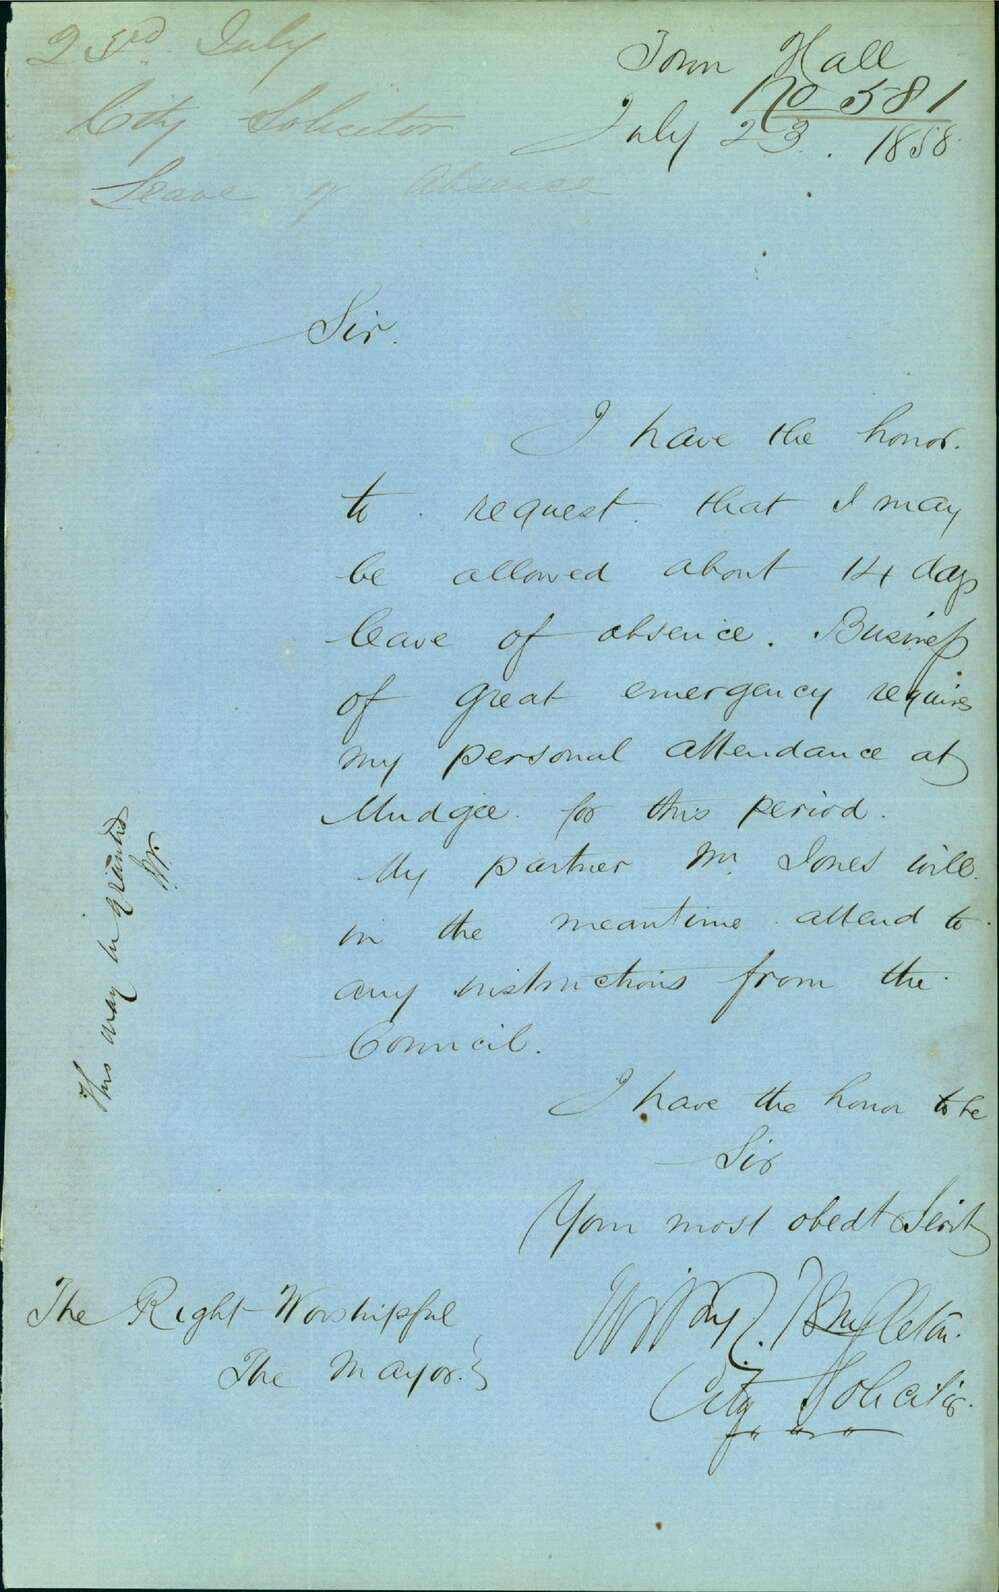 23rd July
City Solicitor
Leave of Absence
Town Hall
No 581
July 23. 1858.
Sir.
I have the honor.
to request that I may
be allowed about 14 days
leave of absence. Business
of great emergency requires
my personal attendance at
Mudgee. for this period.
My partner Mr. Jones will.
in the meantime attend to
any instructions from the
Council.
I have the honor to be
Sir
Your most obedt Servt
City Solicitor.
The Right Worshipful
The Mayor.
This may be granted